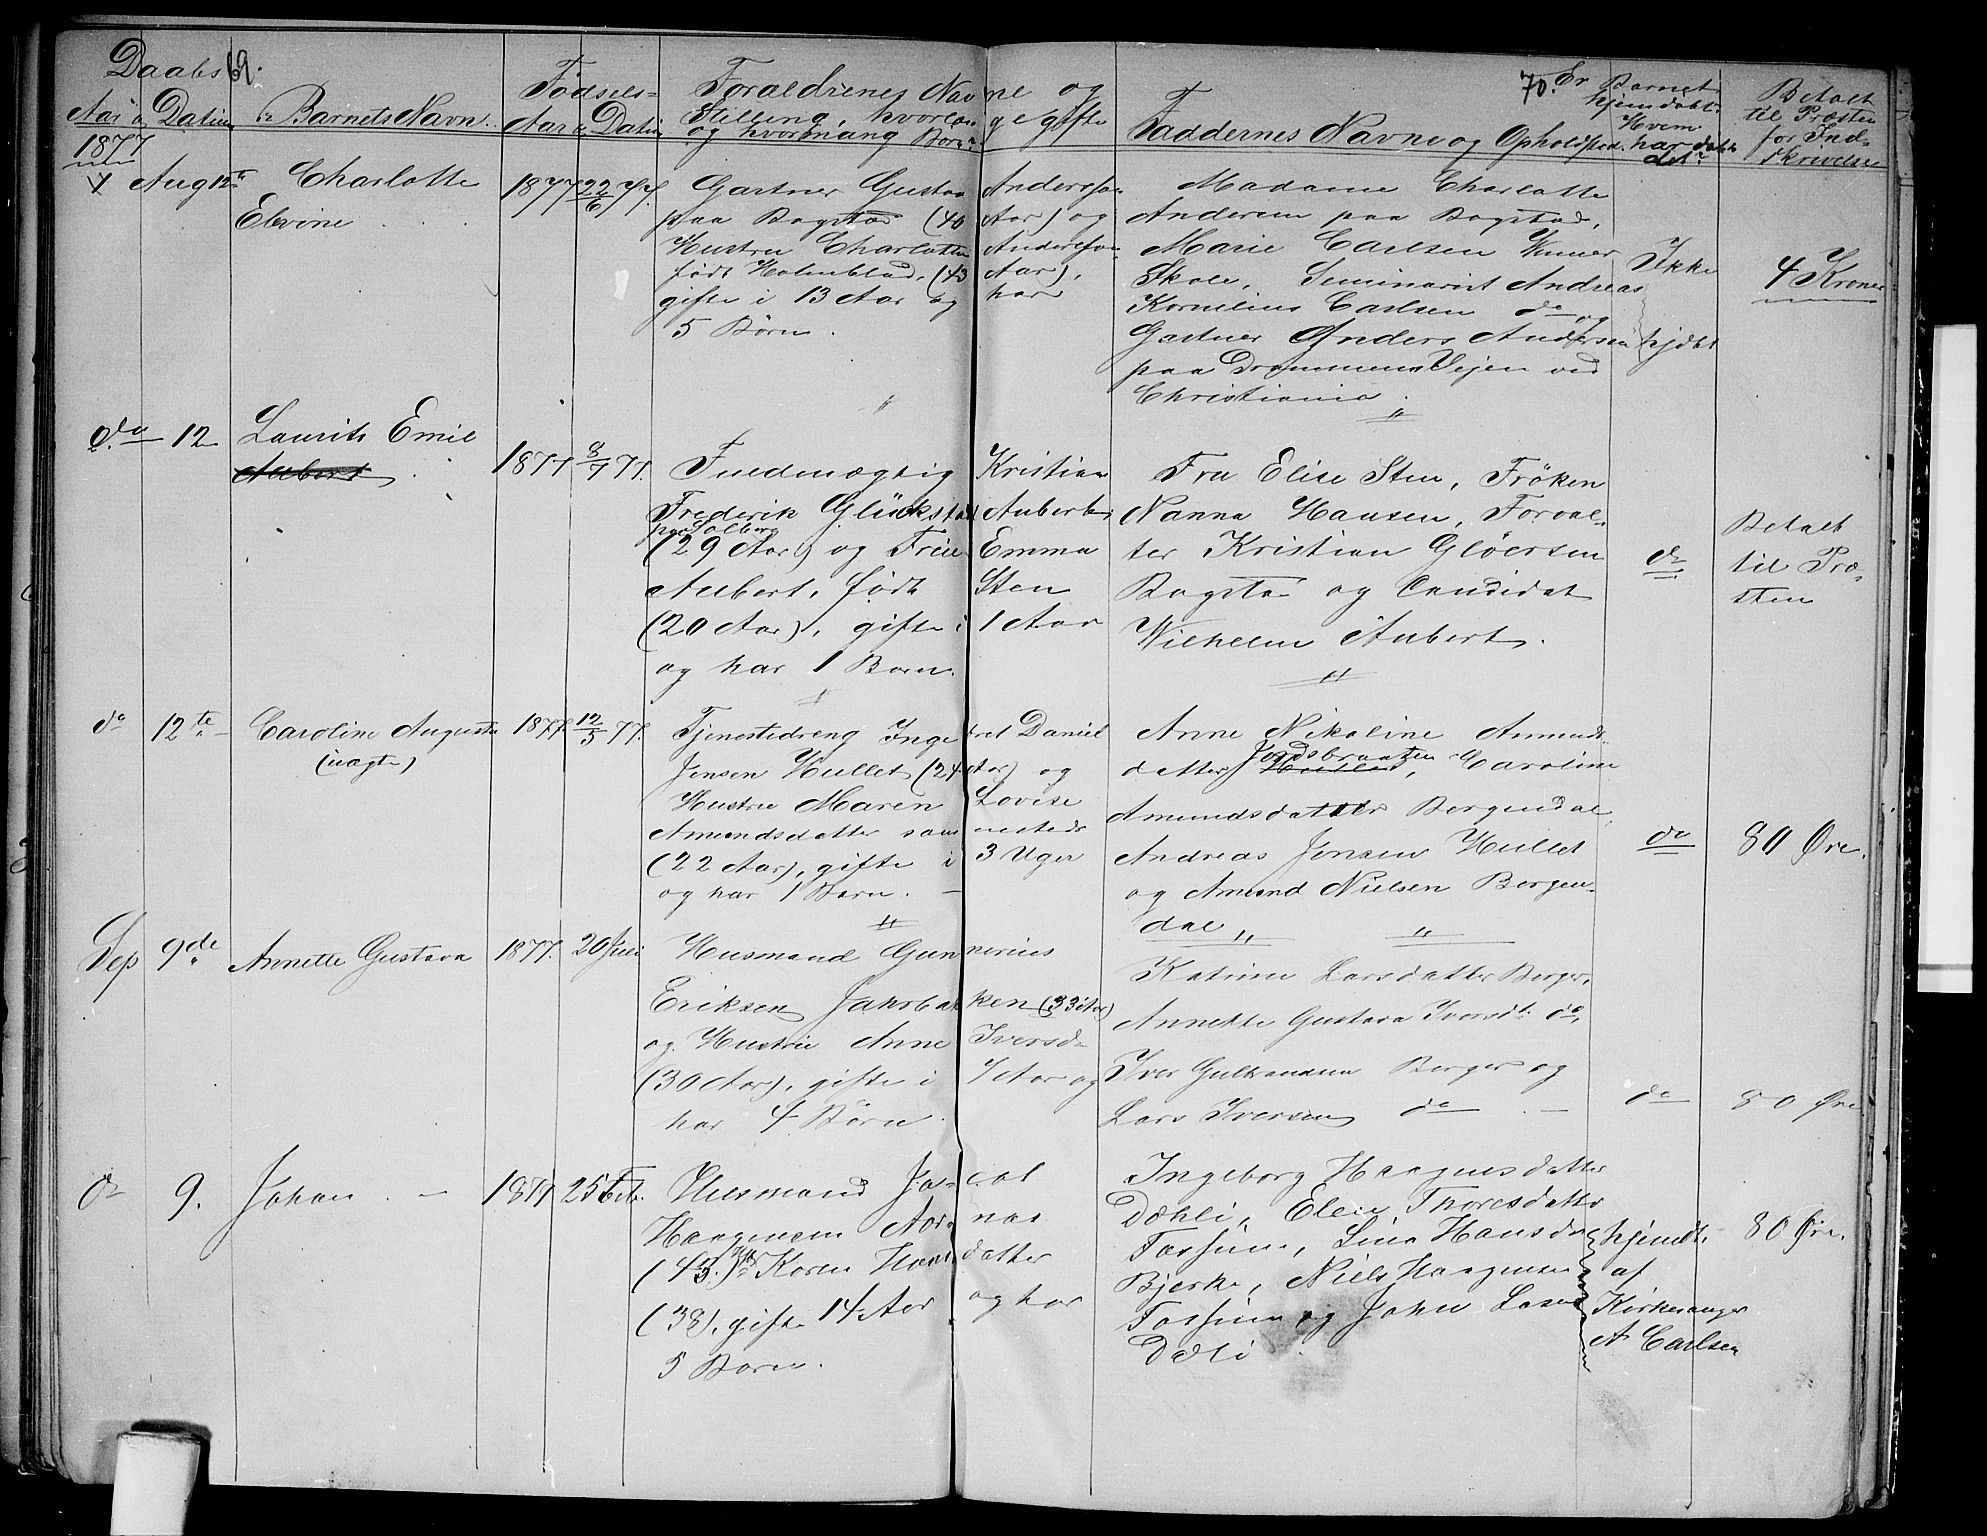 Daabs 69.
Aar og Datum
Barnets Navn.
Fødsels-
Aar og Datum
Forældrenes Navne og
Stilling, hvorlænge gifte
og hvormang Børn
70.
Faddernes Navne og Opholdssted.
Er Barnet
hjemdøbt
Hvem
har døbt
det
Betalt
til Præsten
for Ind-
skrivelse
1877
Aug 12te
Charlotte
Elvine
1877 22/6 77.
Gartner Gustav Anderssen
paa Bogstad (40 Aar) og
Hustru Charlotte Anderssen
født Holmblad, (43 Aar),
gifte i 13 Aar og har
5 Børn.
Madame Charlotte
Andersen paa Bogstad,
Marie Carlsen
Skole, Seminarist Andreas
Kornelius Carlsen do og
Gartner Anders Andersen
paa Drammens Vejen ved
Christiania.
Ikke
hjdbt
4 Kroner
do 12
Laurits Emil
Aubert
1877 3/7 77.
Fuldmægtig Kristian
Frederik Glückstad Aubert
paa Solberg
(29 Aar) og Frue Emma
Aubert, født Sten
(20 Aar), gifte i 1 Aar
og har 1 Barn.
Fru Elise Sten, Frøken
Nanna Hansen, Forval-
ter Kristian Gløersen
Bogstad og Candidat
Wilhelm Aubert.
do
Betalt
til Præ-
sten
do 12te
Caroline Augusta
(uægte)
1877 12/5 77.
Tjenestedreng Ingebret Daniel
Jensen Hullet (24 Aar) og
Hustru Maren Lovise
Amundsdatter sammesteds
(22 Aar), gifte i 3 Uger
og har 1 Barn. —
Anne Nikoline Amunds-
datter Jordsbraaten, Caroline
Amundsdatter Bergendal,
Andreas Jensen Hullet
og Amund Nielsen Bergen-
dal
do
80 Øre.
Sep 9de
Annette Gustava
1877. 20 Juli
Husmand Gunnerius
Eriksen Jahrbakken (33 Aar)
og Hustru Anne Iversd-
(30 Aar), gifte i 7 Aar og
har 4 Børn.
Katrine Larsdatter Berger,
Annette Gustava Iversdt do,
Iver Gulbrandsen Berger og
Lars Iversen do —
do
80 Øre
do 9.
Johan —
1877 25 Feb.
Husmand Jacob
Haagensen Aarnæs
(43.) Karen Hansdatter
(38), gifte 14 Aar og har
5 Børn.
Ingeborg Haagensdatter
Dæhli, Elen Thoresdatter
Fossum, Lina Hansd-
Bjerke, Niels Haagensen
Fossum og Johan Larsen
Dæli
hjemdt.
af
Kirkesanger
A Carlsen
80 Øre.